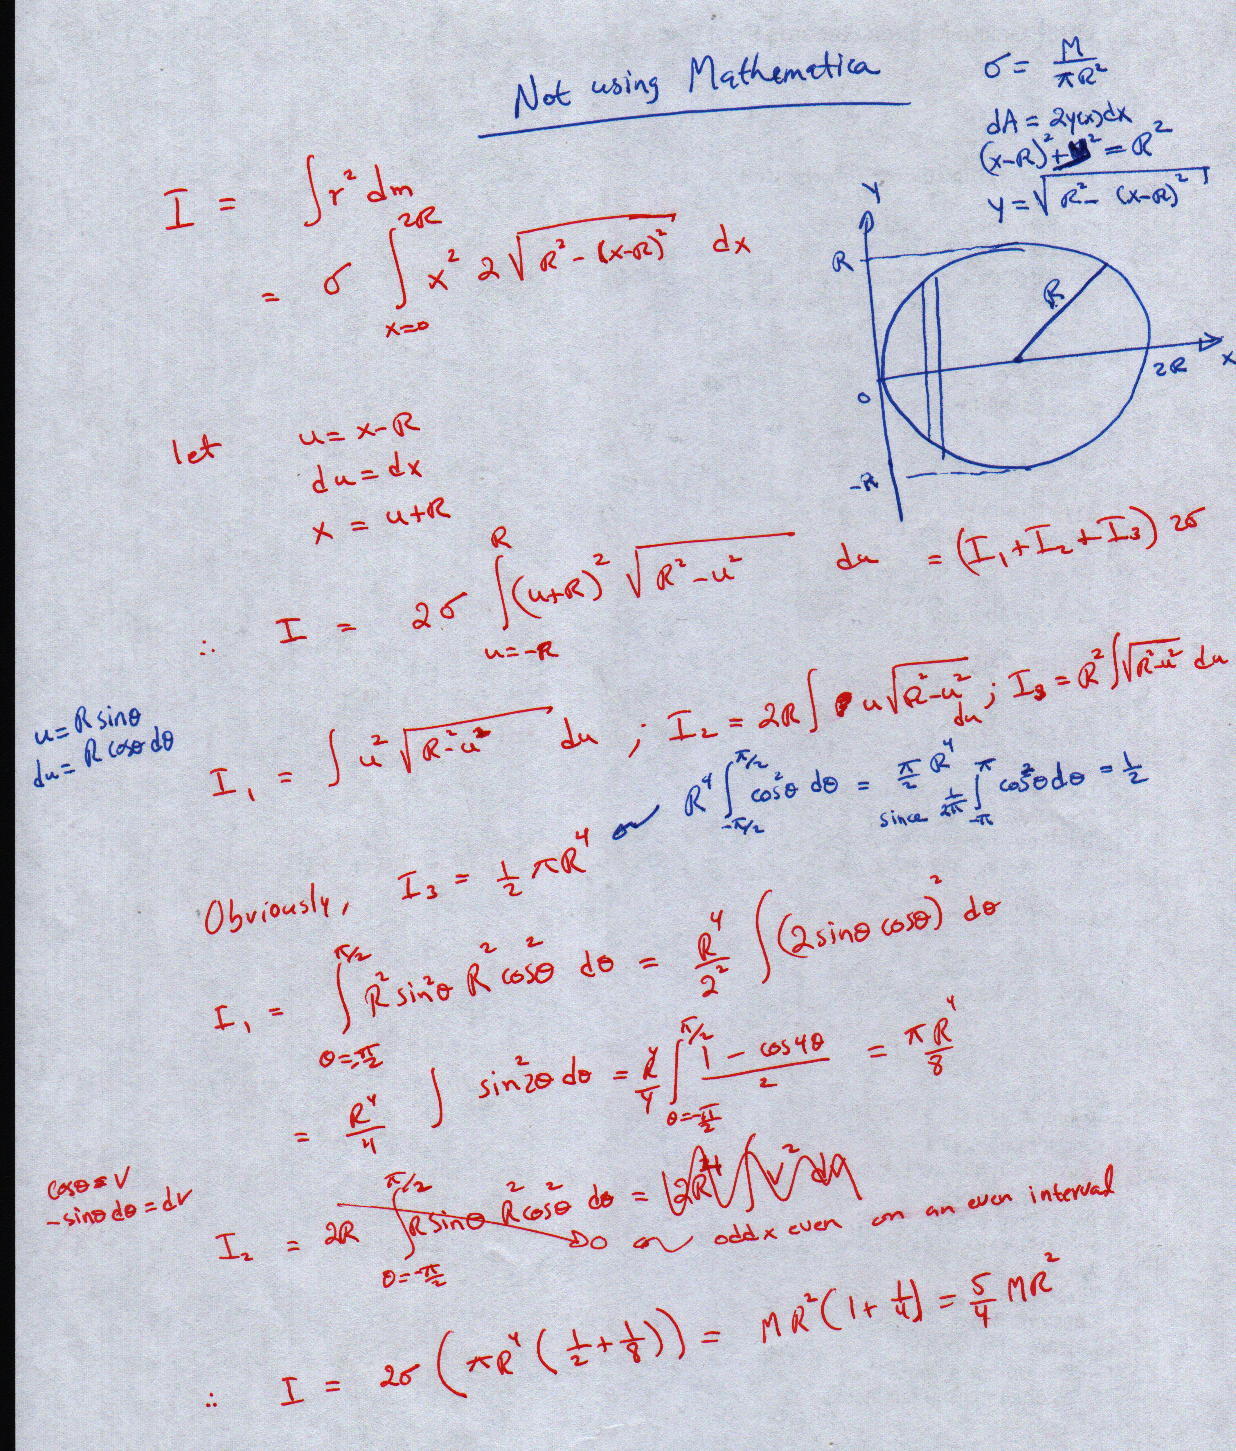 Not using Mathematica
σ = M/(πR²)
dA = 2y(x)dx
(x-R)² + y² = R²
y = √(R² - (x-R)²)
I = ∫r² dm
= σ ∫_{x=0}^{2R} x² 2√(R² - (x-R)²) dx
Y
R
R
0
2R
x
-R
let u = x-R
du = dx
x = u+R
∴ I = 2σ ∫_{u=-R}^{R} (u+R)² √(R² - u²) du = (I₁ + I₂ + I₃) 2σ
u = R sinθ
du = R cosθ dθ
I₁ = ∫ u² √(R² - u²) du ; I₂ = 2R ∫ u √(R² - u²) du ; I₃ = R² ∫ √(R² - u²) du
R⁴ ∫_{-π/2}^{π/2} cos²θ dθ = π/2 R⁴
since 1/2π ∫_{-π}^{π} cos²θ dθ = 1/2
Obviously, I₃ = 1/2 πR⁴
I₁ = ∫_{θ=-π/2}^{π/2} R² sin²θ R² cos²θ dθ = R⁴/2² ∫ (2 sinθ cosθ)² dθ
= R⁴/4 ∫ sin²2θ dθ = R⁴/4 ∫_{θ=-π/2}^{π/2} (1 - cos4θ)/2 = πR⁴/8
cosθ = v
-sinθ dθ = dv
I₂ = 2R ∫_{θ=-π/2}^{π/2} R sinθ R² cos²θ dθ = 2R⁴ ∫ v² dv
0 odd x even on an even interval
∴ I = 2σ (πR⁴ (1/2 + 1/8)) = MR² (1 + 1/4) = 5/4 MR²